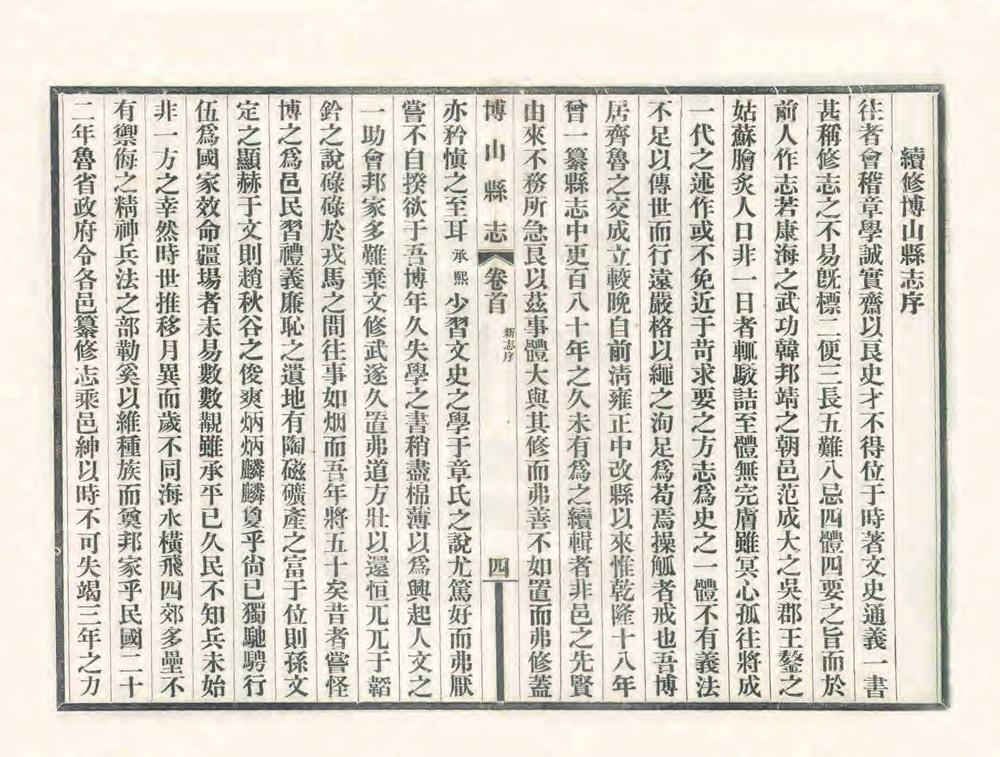 續修博山縣志序
往者會稽章學誠實齋以良史才不得位于時著文史通義一書
甚稱修志之不易旣標二便三長五難八忌四體四要之旨而於
前人作志若康海之武功韓邦靖之朝邑范成大之吳郡王鏊之
姑蘇膾炙人口非一日者輒駮詰至體無完膚雖冥心孤往將成
一代之述作或不免近于苛求要之方志爲史之一體不有義法
不足以傳世而行遠嚴格以繩之洵足爲苟焉操觚者戒也吾博
居齊魯之交成立較晚自前淸雍正中改縣以來惟乾隆十八年
曾一纂縣志中更百八十年之久未有爲之續輯者非邑之先賢
由來不務所急良以茲事體大與其修而弗善不如置而弗修蓋
博山縣志 卷首 新志序 四
亦矜愼之至耳承熙少習文史之學于章氏之說尤篤好而弗厭
嘗不自揆欲于吾博年久失學之書稍盡棉薄以爲興起人文之
一助會邦家多難棄文修武遂久置弗道方壯以還恒兀兀于韜
鈐之說碌碌於戎馬之間往事如烟而吾年將五十矣昔者嘗怪
博之爲邑民習禮義廉恥之遺地有陶磁礦產之富于位則孫文
定之顯赫于文則趙秋谷之俊爽炳炳麟麟敻乎尙已獨馳騁行
伍爲國家效命疆場者未易數數覯雖承平已久民不知兵未始
非一方之幸然時世推移月異而歲不同海水橫飛四郊多壘不
有禦侮之精神兵法之部勒奚以維種族而奠邦家乎民國二十
二年魯省政府令各邑纂修志乘邑紳以時不可失竭三年之力